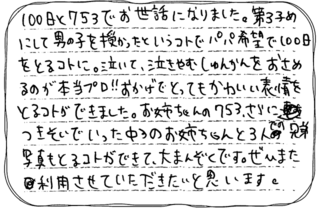 100日と753でお世話になりました。第3子め
にして男の子を授かったというコトでパパ希望で100日
をとるコトに。泣いて、泣きやむしゅんかんをおさめ
るのが本当プロ!!おかげでとってもかわいい表情を
とるコトができました。お姉ちゃんの753、さらに
つきそいでいった中3のお姉ちゃんと3人で兄弟
写真もとるコトができて、大まんぞくです。ぜひまた
利用させていただきたいと思います。